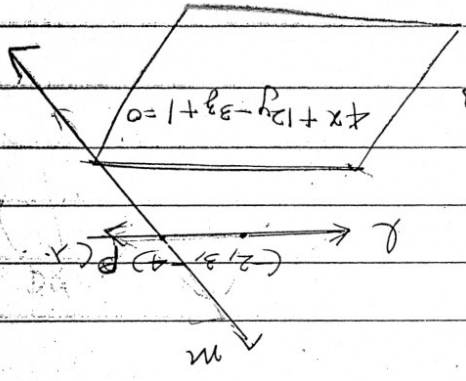 m
(-2, 3, -4) P(x,
l
4x + 12y - 3z + 1 = 0